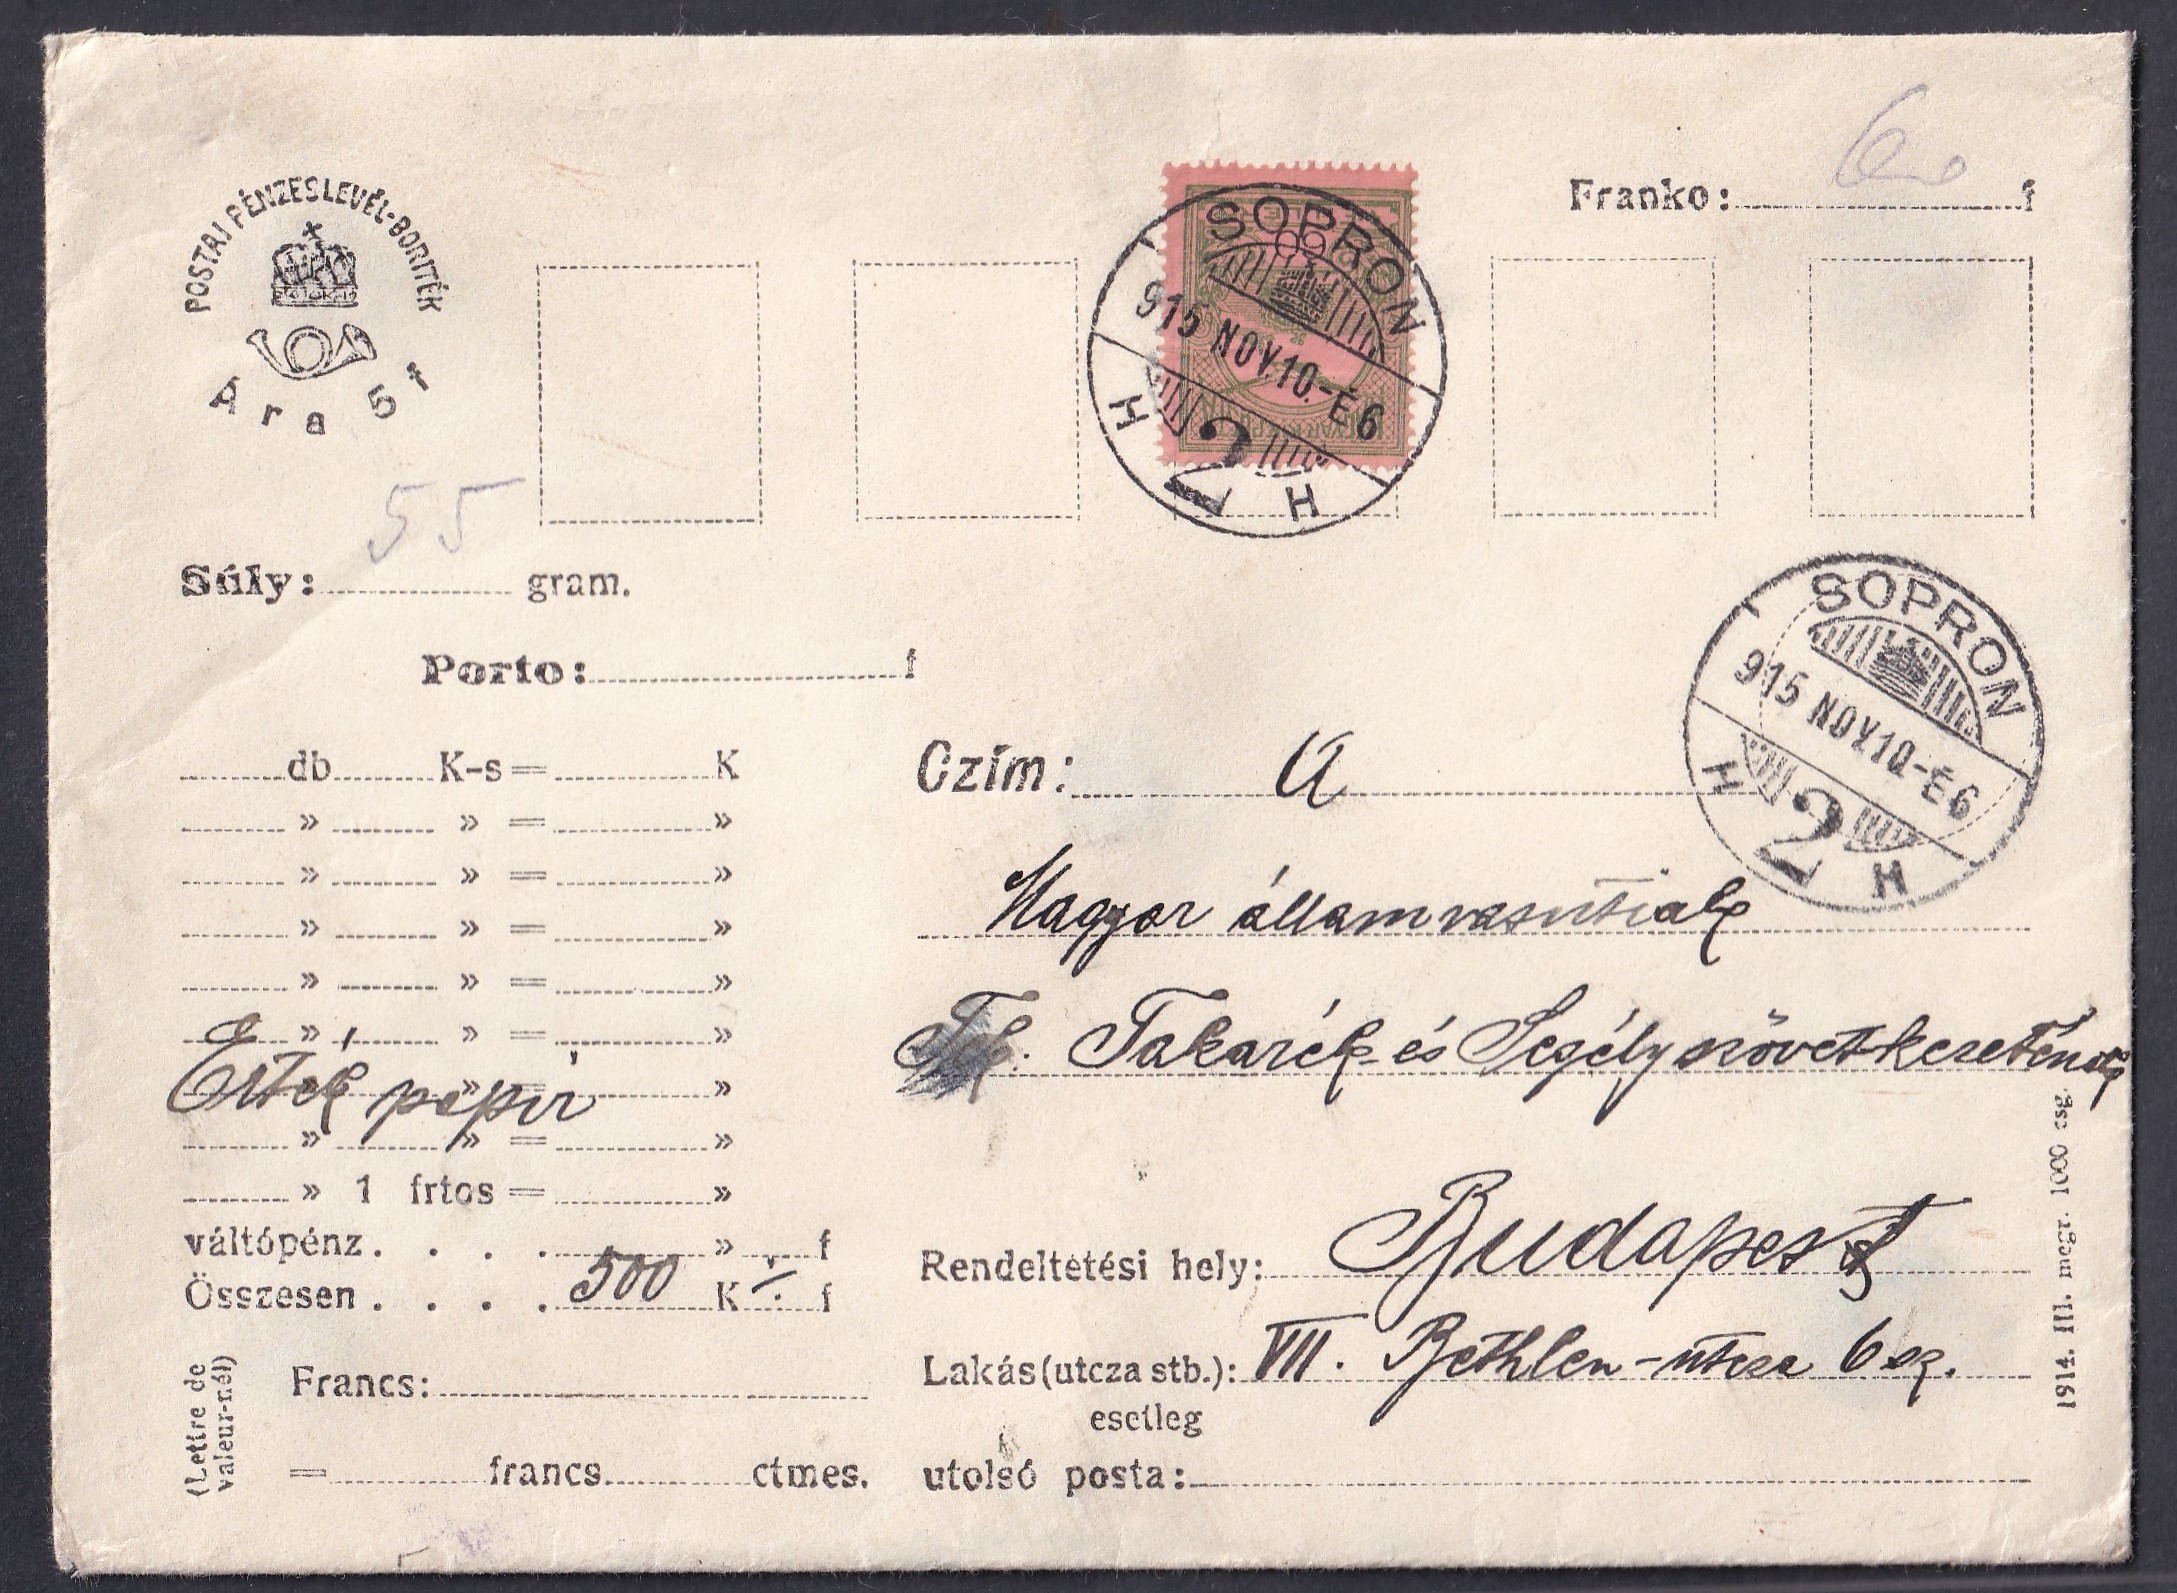 POSTAI PÉNZESLEVÉL-BORITÉK
Ára 5 f
Franko: 60 f
SOPRON
915 NOV.10.-É6
H 2 H
55
Súly: gram.
Porto: f
SOPRON
915 NOV.10-É6
H 2 H
db K-s = K
» » = »
» » = »
» » = »
» » = »
» » = »
» » = »
Érték papir
» » = »
» 1 frtos = »
váltópénz . . . . » f
Összesen . . . . 500 K f
(Lettre de
valeur-nél)
Francs:
= francs ctmes.
Czím: A
Magyar államvasutiak
Takarék és Segélyszövetkezetének
Rendeltetési hely: Budapest
Lakás (utcza stb.): VII. Bethlen-utcza 6 sz.
esetleg
utolsó posta:
1914. III. megr. 1000 csg.